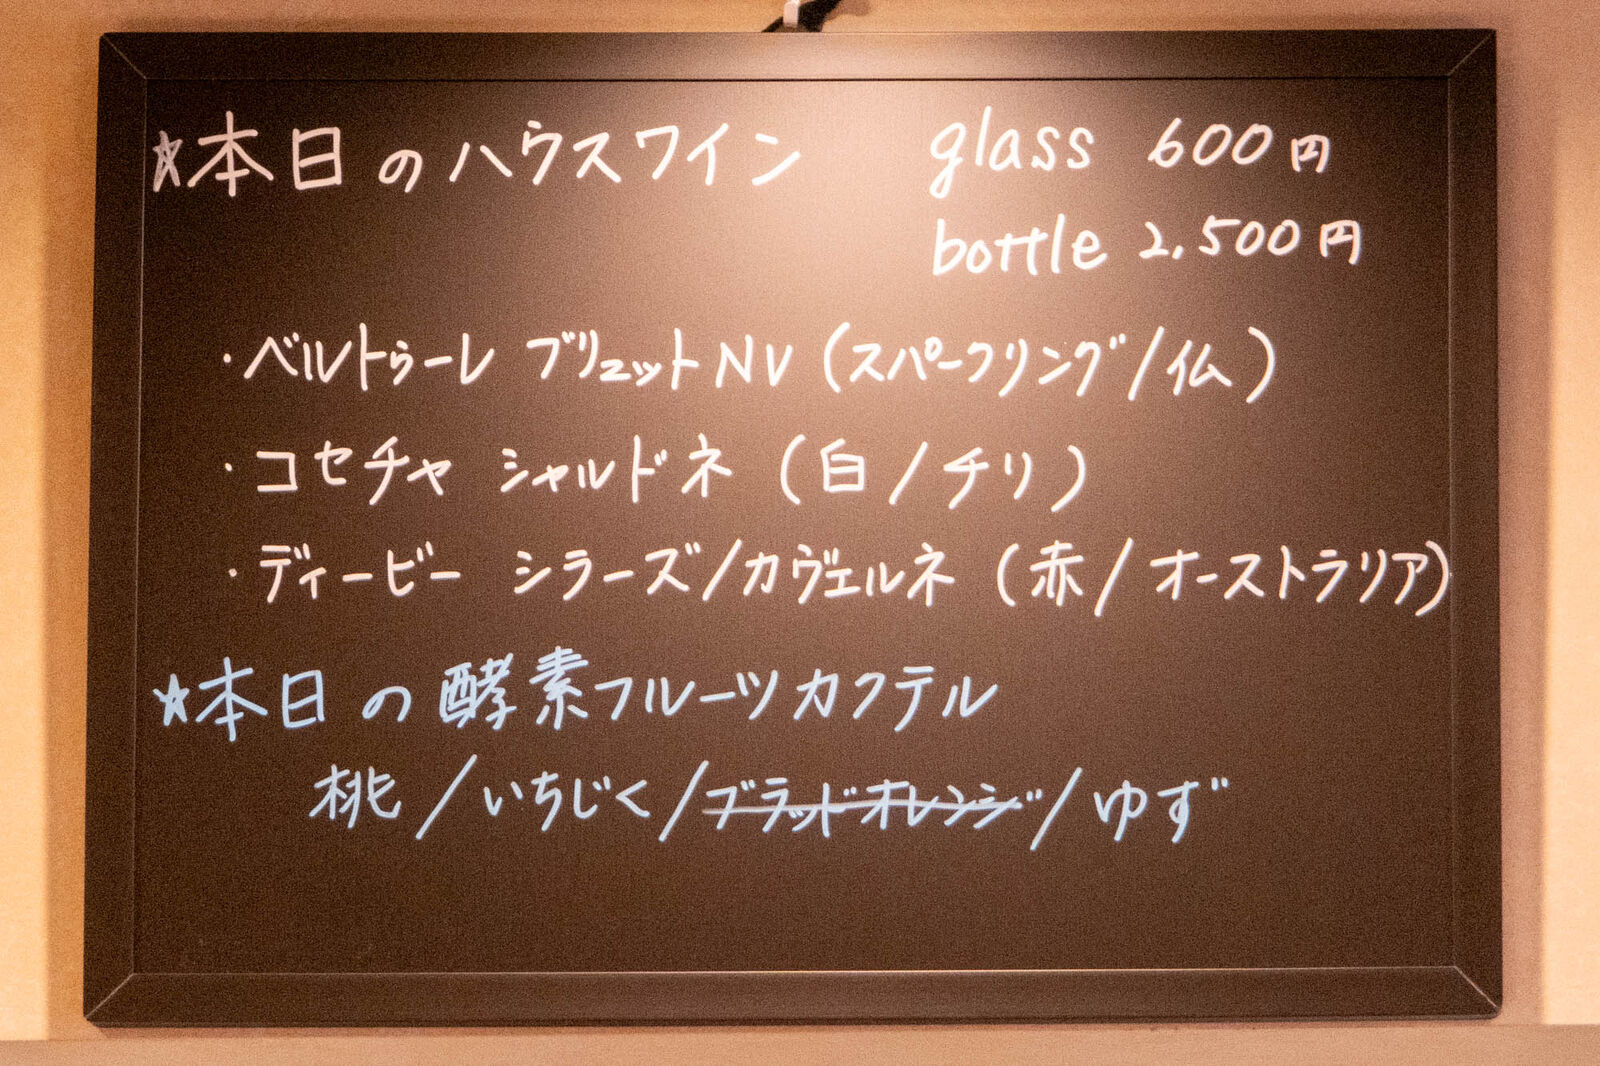 ☆本日のハウスワイン glass 600円
bottle 2,500円
・ベルトゥーレ ブリュットNV(スパークリング/仏)
・コセチャ シャルドネ(白/チリ)
・ディービー シラーズ/カヴェルネ(赤/オーストラリア)
☆本日の酵素フルーツカクテル
桃/いちじく/ブラッドオレンジ/ゆず